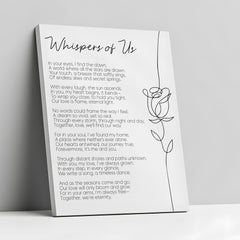 Whispers of Us
In your eyes, I find the dawn,
A world where all the stars are drawn.
Your touch, a breeze that softly sings,
Of endless skies and secret springs.
With every laugh, the sun ascends,
In you, my heart begins, it bends—
To wrap you close, to hold you tight,
Our love a flame, eternal light.
No words could frame the way I feel,
A dream so vivid, yet so real.
Through every storm, through night and day,
Together, love, we'll find our way.
For in your soul, I've found my home,
A place where neither's ever alone.
Our hearts entwined, our journey true,
Forevermore, it's me and you.
Through distant shores and paths unknown,
With you, my love, I've always grown.
In every step, in every glance,
We write a song, a timeless dance.
And as the seasons come and go,
Our love will only bloom and grow.
For in your arms, I'm always free—
Together, we're eternity.